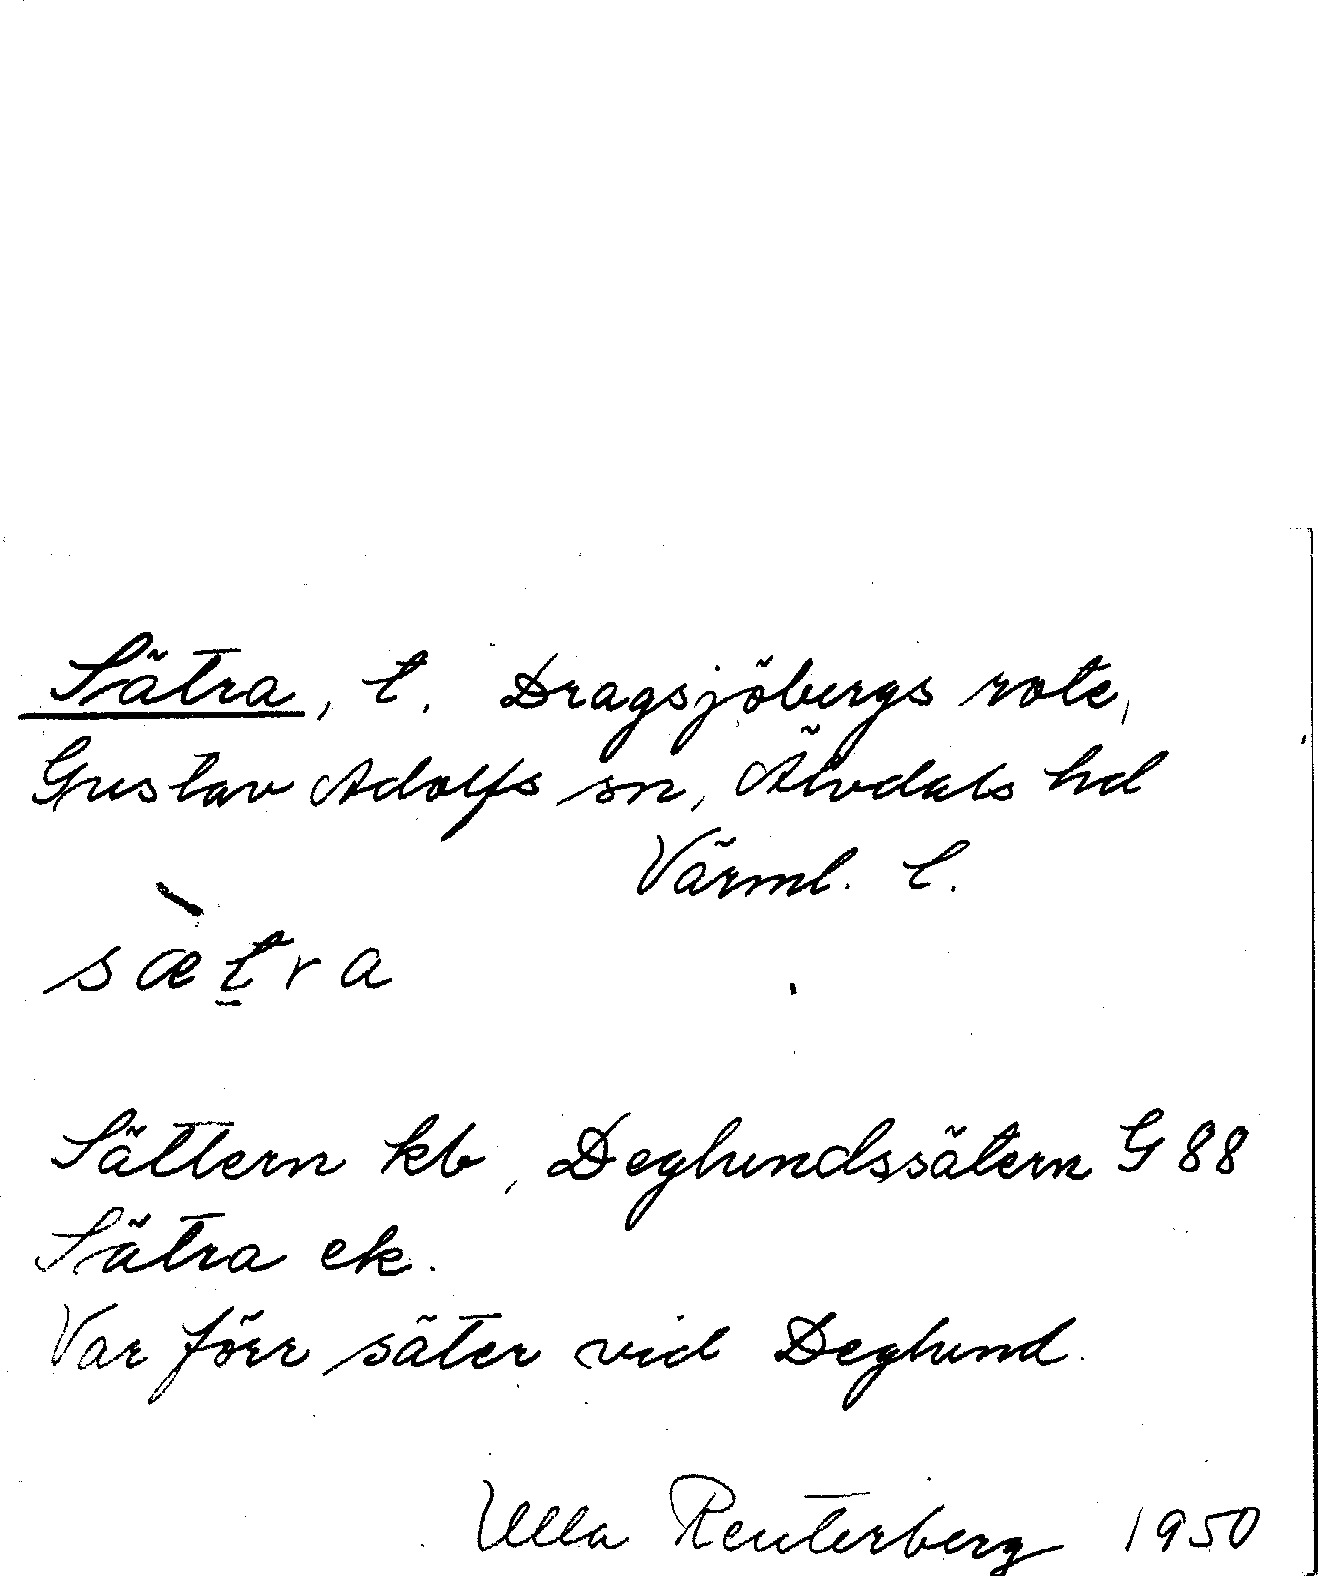 Sätra, t. Dragsjöbergs rote,
Gustav Adolfs sn, Älvdals hd
Värml. l.
sæ̀t̲ra
Sättern kb, Deglundssätern G 88
Sätra ek.
Var förr säter vid Deglund.
Ulla Reuterberg 1950